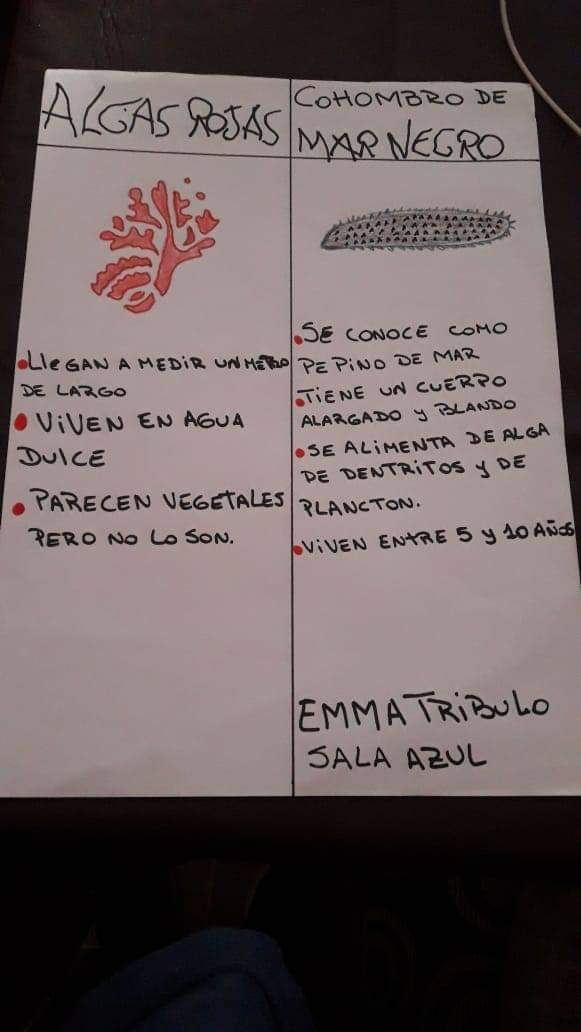 ALGAS ROJAS
• LlEGAN A MEDIR UN METRO
DE LARGO
• ViVEN EN AGUA
DULCE
• PARECEN VEGETALES
PERO NO LO SON.
COHOMBRO DE
MAR NEGRO
• SE CONOCE COMO
PEPINO DE MAR
• TIENE UN CUERPO
ALARGADO y BLANDO
• SE ALiMENTA DE ALGA
DE DENTRITOS y DE
PLANCTON.
• ViVEN ENTRE 5 y 10 AÑOS
EMMA TRiBULO
SALA AZUL